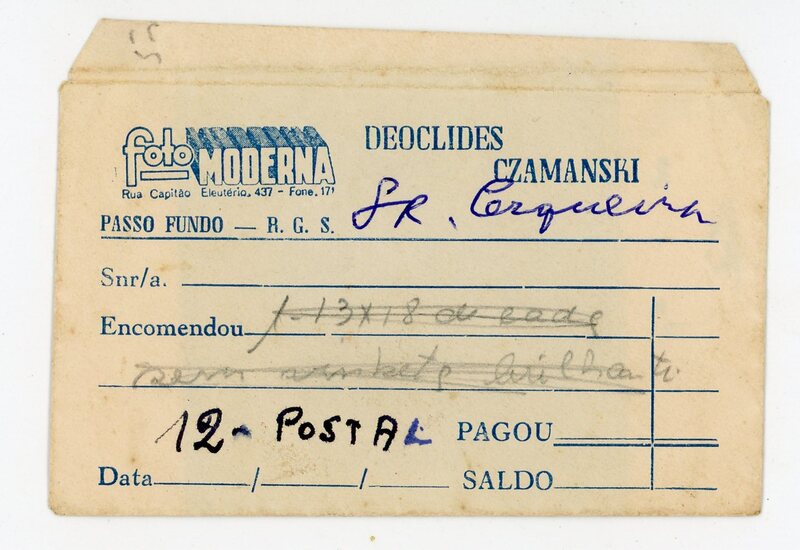 foto MODERNA
Rua Capitão Eleutério, 437 - Fone, 171
DEOCLIDES
CZAMANSKI
PASSO FUNDO — R. G. S.
SR. Cerqueira
Snr/a.
Encomendou 1-13x18 de cada
sem brilhante
12 - POSTAL
PAGOU
Data / /
SALDO